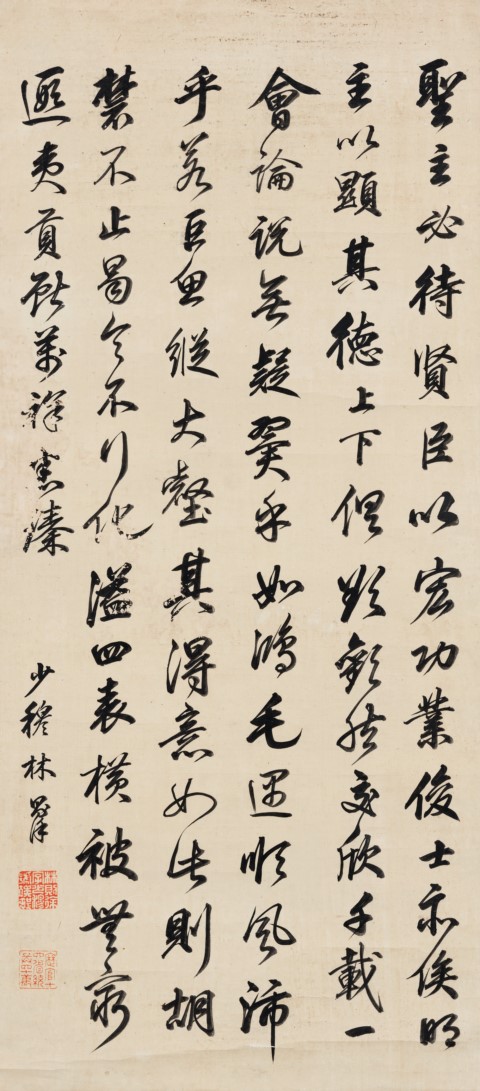 聖主必待賢臣以宏功業俊士亦俟明
主以顯其德上下俱欲歡然交欣千載一
會論說無疑翼乎如鴻毛遇順風沛
乎若巨魚縱大壑其得意如此則胡
禁不止曷令不行化溢四表橫被無窮
遐夷貢獻萬祥畢臻
少穆林則徐